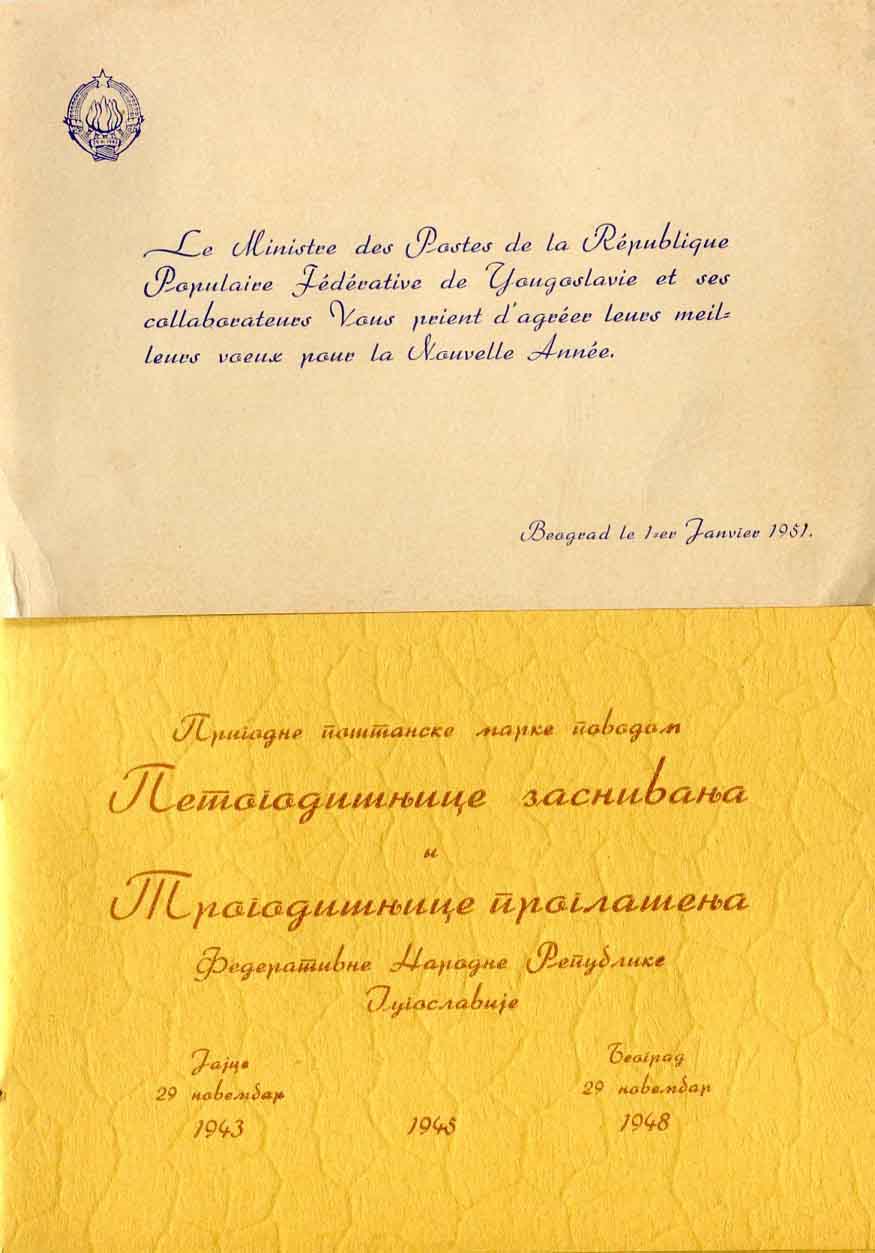 Le Ministre des Postes de la République
Populaire Fédérative de Yougoslavie et ses
collaborateurs Vous prient d'agréer leurs meil=
leurs voeux pour la Nouvelle Année.
Beograd le 1=er Janvier 1951.
Пригодне поштанске марке поводом
Петогодишњице заснивања
и
Трогодишњице проглашења
Федеративне Народне Републике
Југославије
Јајце
29 новембар
1943
1945
Београд
29 новембар
1948